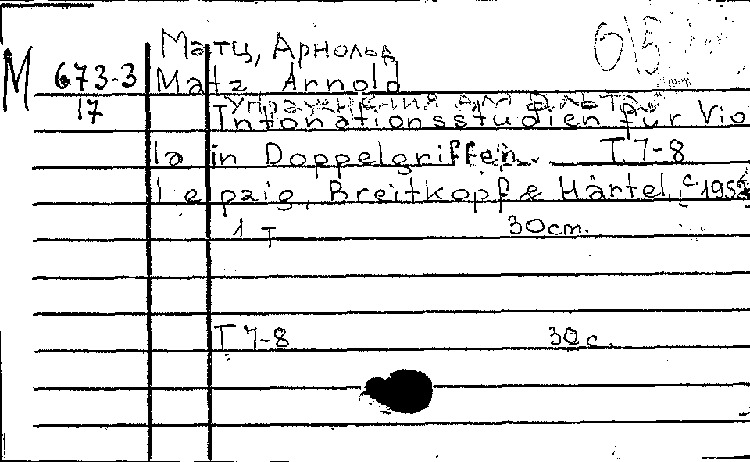 Матц, Арнольд
М 673-3 Matz Arnold
17
Упражнения для альта
Intonationsstudien für Vio
la in Doppelgriffen. T. 7-8
Leipzig, Breitkopf & Härtel, c 195
1 т 30 cm.
T 7-8 30 c.